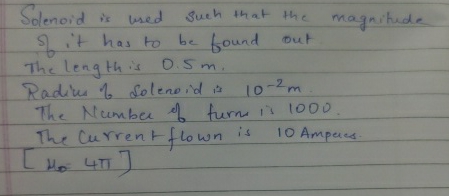 Solenoid is used such that the magnitude
of it has to be found out.
The length is 0.5 m.
Radius of Solenoid is 10-2 m
The Number of turns is 1000.
The Current flown is 10 Amperes.
[ μ0 4π ]